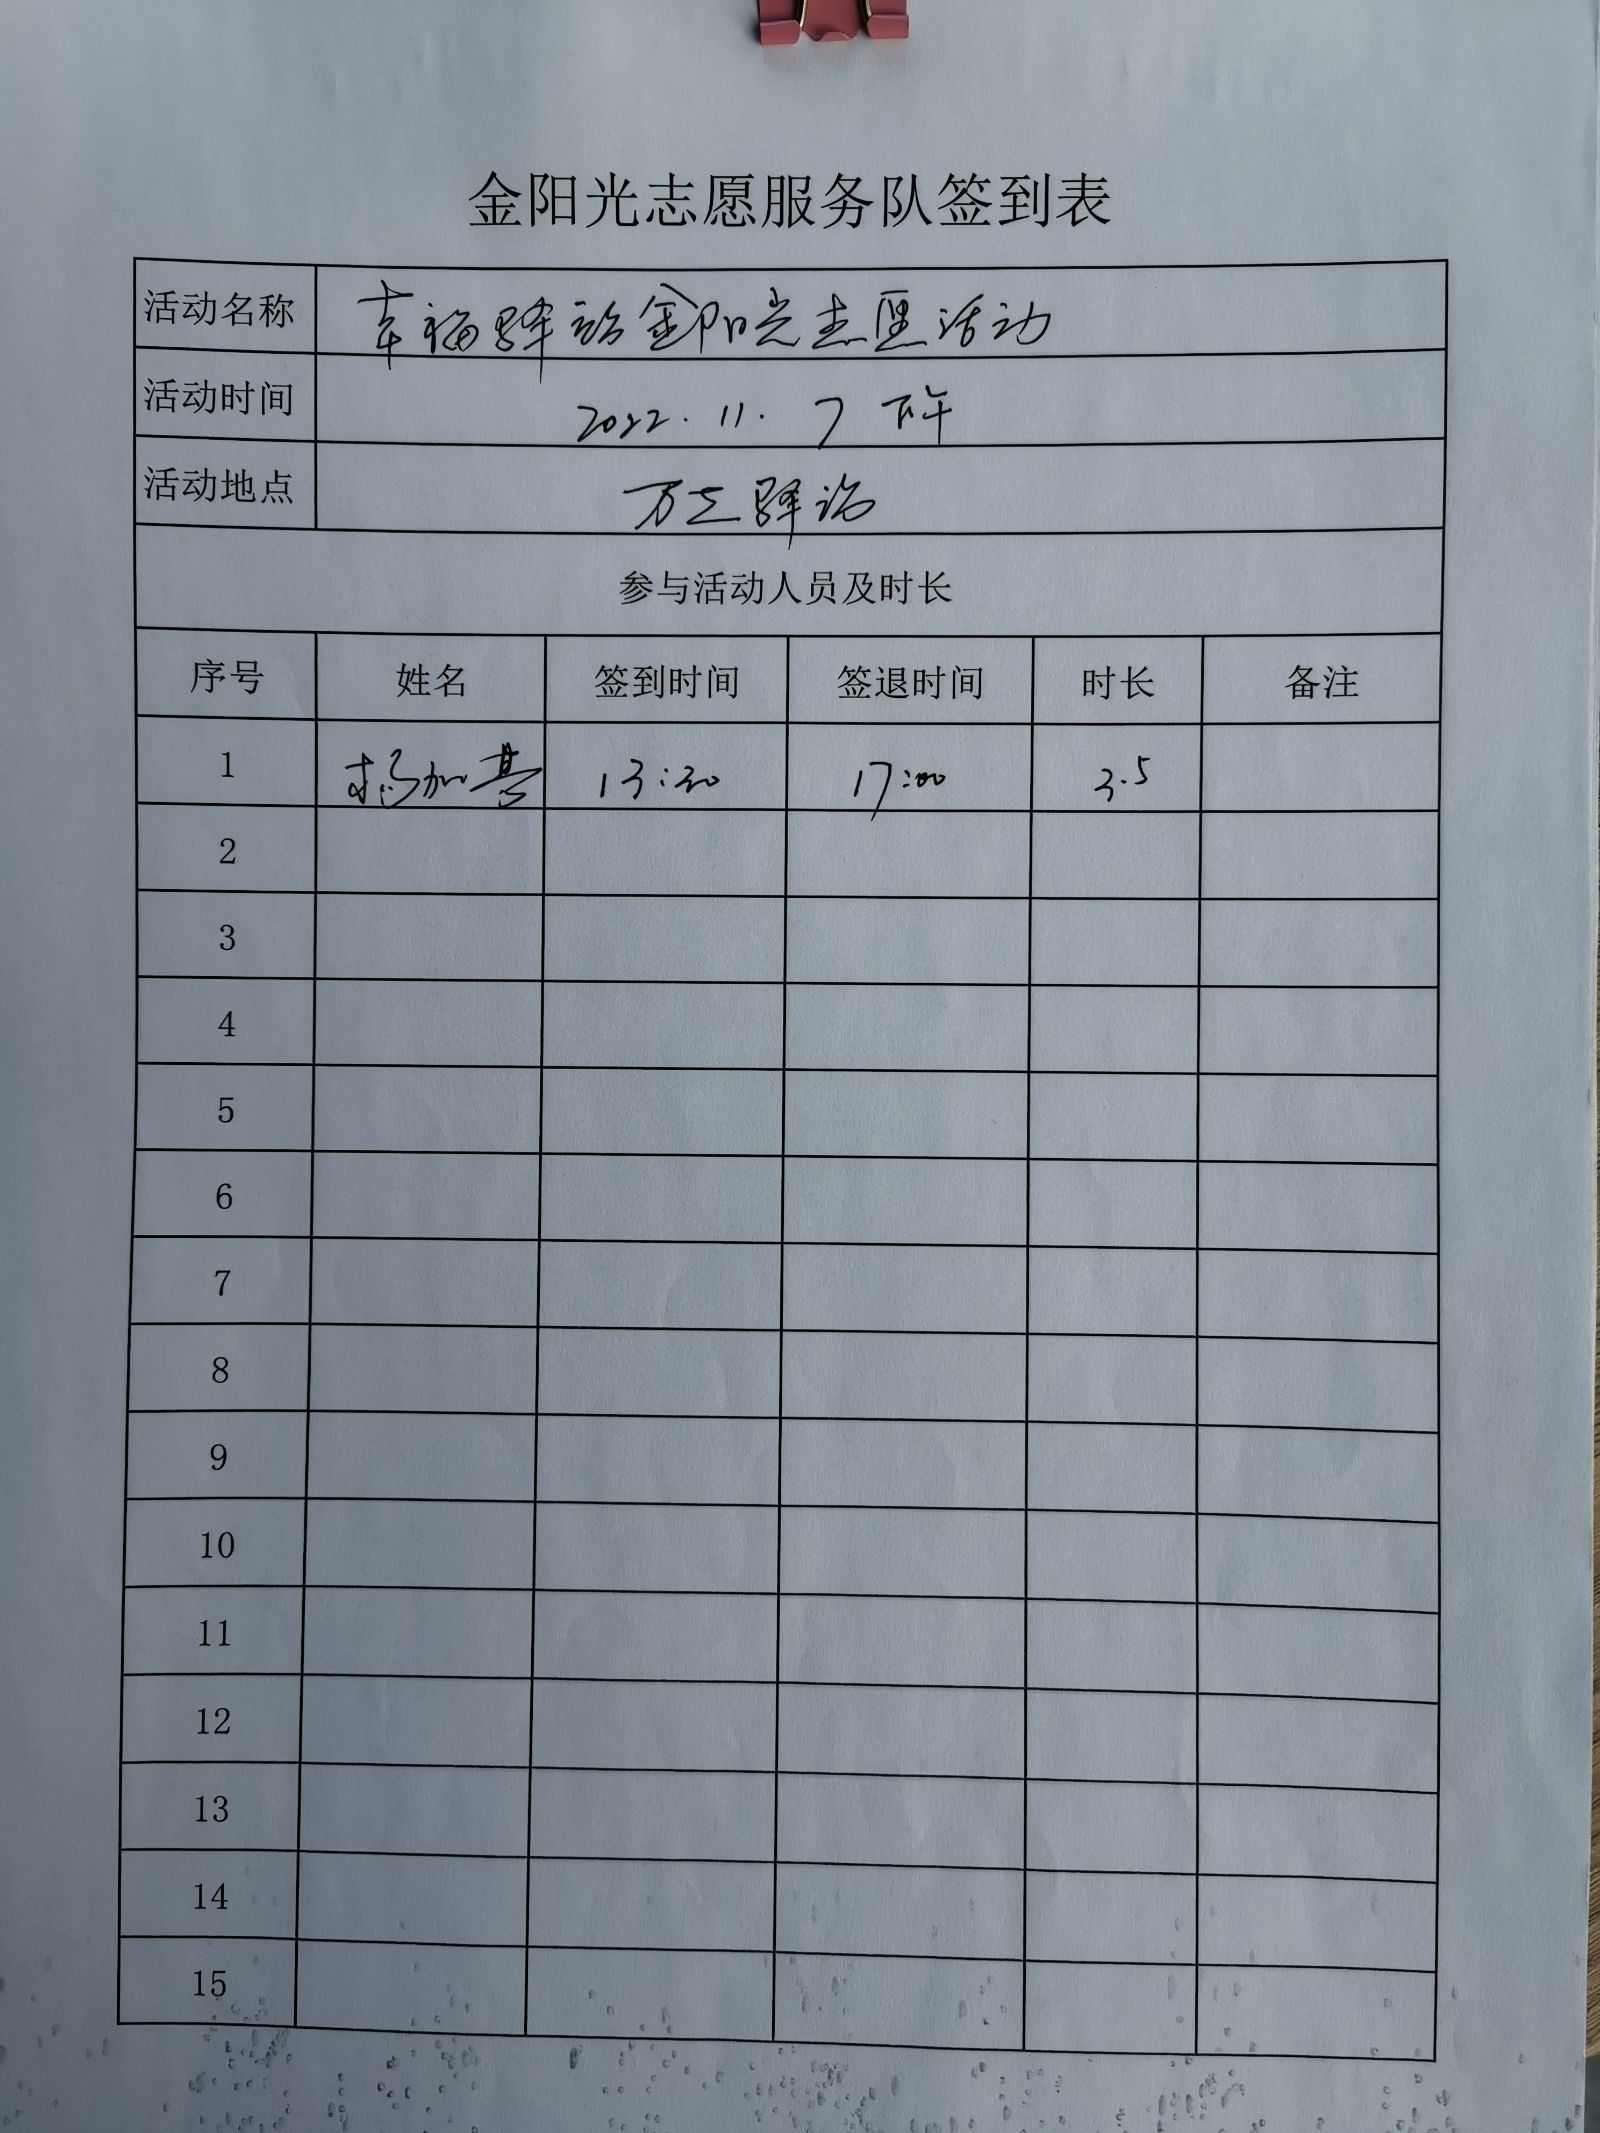 金阳光志愿服务队签到表
活动名称 幸福驿站金阳光志愿活动
活动时间 2022.11.7 下午
活动地点 万立驿站
参与活动人员及时长
序号 姓名 签到时间 签退时间 时长 备注
1 杨加 13:30 17:00 3.5
2
3
4
5
6
7
8
9
10
11
12
13
14
15